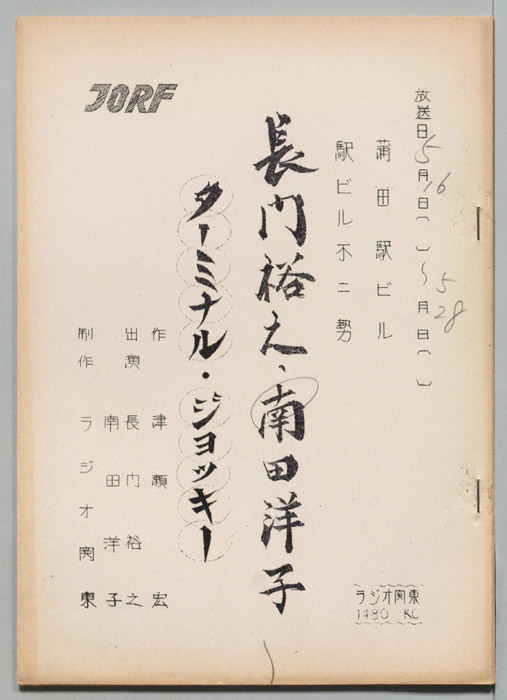 放送日 5月16日( )〜5月28日( )
蒲田駅ビル
駅ビル不二勢
長門裕之、南田洋子
ターミナル・ジョッキー
JORF
作 津瀬宏
出演 長門裕之
南田洋子
制作 ラジオ関東
ラジオ関東
1480 KC